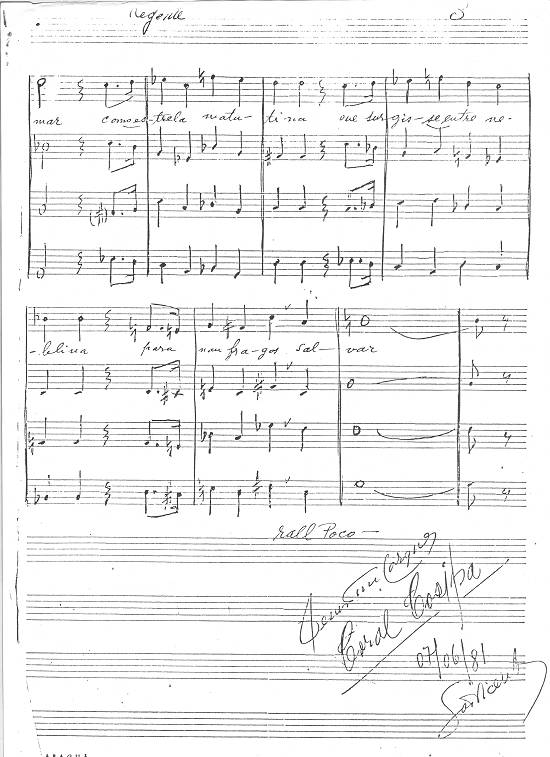 Regente
mar como es-trela matu- ti na que sur-gis-se entre ne-
-blina para nau fra-gos sal- var
rall Poco —
Coral Cosipa
07/06/81
São Vicente